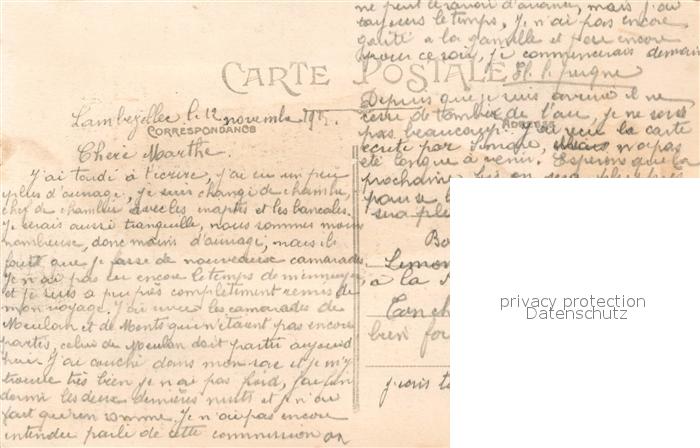 ne peut savoir d'avance, mais j'ai
toujours le temps. Je n'ai pas encore
goûté a la gamelle et pas encore
pour ce soir, je commencerais demain
CARTE POSTALE
Depuis que je suis arrivé il ne
cesse de tomber de l'au, je ne sors
pas beaucoup. J'ai reçu la carte
écrite par Simone, mais n'a pas
été longue à venir. Espérons que la
prochaine
sera
Lambezellec le 12 novembre 191
CORRESPONDANCE
ADRESSE
Cheri Marthe.
J'ai tardé à t'écrire, j'ai eu un peu
plus d'ouvrage, je suis changé de chambre,
chef de chambre avec les inaptes et les bancales.
Je serais aussi tranquille, nous sommes moins
nombreuse, donc moins d'ouvrage, mais il
faut que je fasse de nouveaux camarades.
Je n'ai pas eu encore le temps de m'ennuyer
et je suis a peu près complètement remis de
mon voyage. J'ai vu les camarades de
Meulan et de Monts qui n'étaient pas encore
partis, celui de Meulan doit partir aujourd
huis. J'ai couché dans mon sac et je m'y
trouve très bien je n'ai pas froid, j'ai bien
dormi les deux dernières nuits et je n'ai
fait qu'un somme. Je n'ai pas encore
entendu parlé de cette commission on
à la
bien
privacy protection
Datenschutz